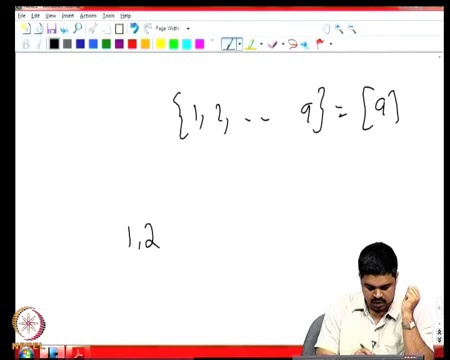 File Edit View Insert Actions Tools Help
Page Width
{1, 2, .. 9} = [9]
1, 2